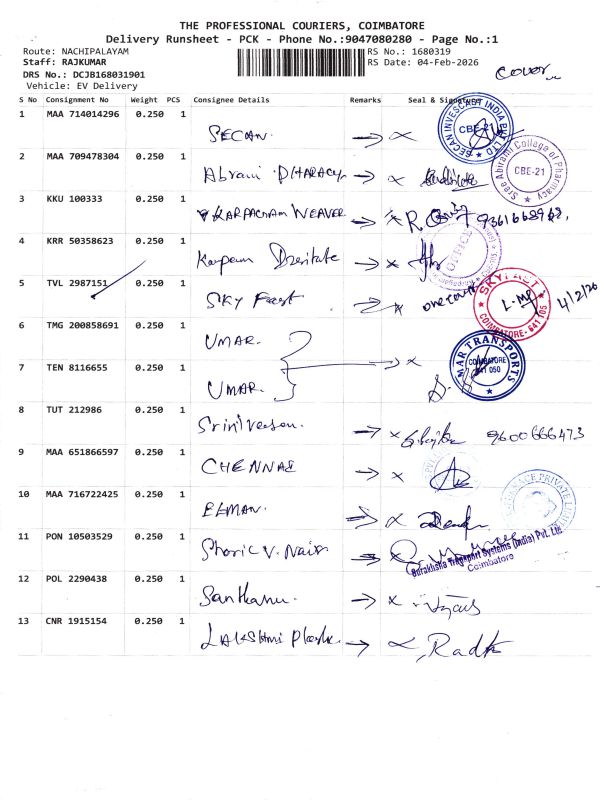 THE PROFESSIONAL COURIERS, COIMBATORE
Delivery Runsheet - PCK - Phone No.:9047080280 - Page No.:1
Route: NACHIPALAYAM
RS No.: 1680319
Staff: RAJKUMAR
RS Date: 04-Feb-2026
DRS No.: DCJB168031901
Vehicle: EV Delivery
cover
S No Consignment No Weight PCS Consignee Details Remarks Seal & Signature
1 MAA 714014296 0.250 1 SECAN
SECAN INVESCAST INDIA PVT LTD CBE-21
2 MAA 709478304 0.250 1 Abrami
Sree Abrami College of Pharmacy CBE-21
3 KKU 100333 0.250 1 KARPAGAM WEAVER
4 KRR 50358623 0.250 1 Karpam
5 TVL 2987151 0.250 1 SKY Fast one cover 4/2/26
SKYFAST COIMBATORE- 641 105
6 TMG 200858691 0.250 1 UMAR.
7 TEN 8116655 0.250 1 UMAR.
MAR TRANSPORTS COIMBATORE 641 050
8 TUT 212986 0.250 1 9600666473
9 MAA 651866597 0.250 1 CHENNAI
10 MAA 716722425 0.250 1 ELMAN.
11 PON 10503529 0.250 1 V. Nair
Surakhsha Transport Systems (India) Pvt. Ltd.
Coimbatore
12 POL 2290438 0.250 1 Santhanu.
13 CNR 1915154 0.250 1 LAKSHMI Radha